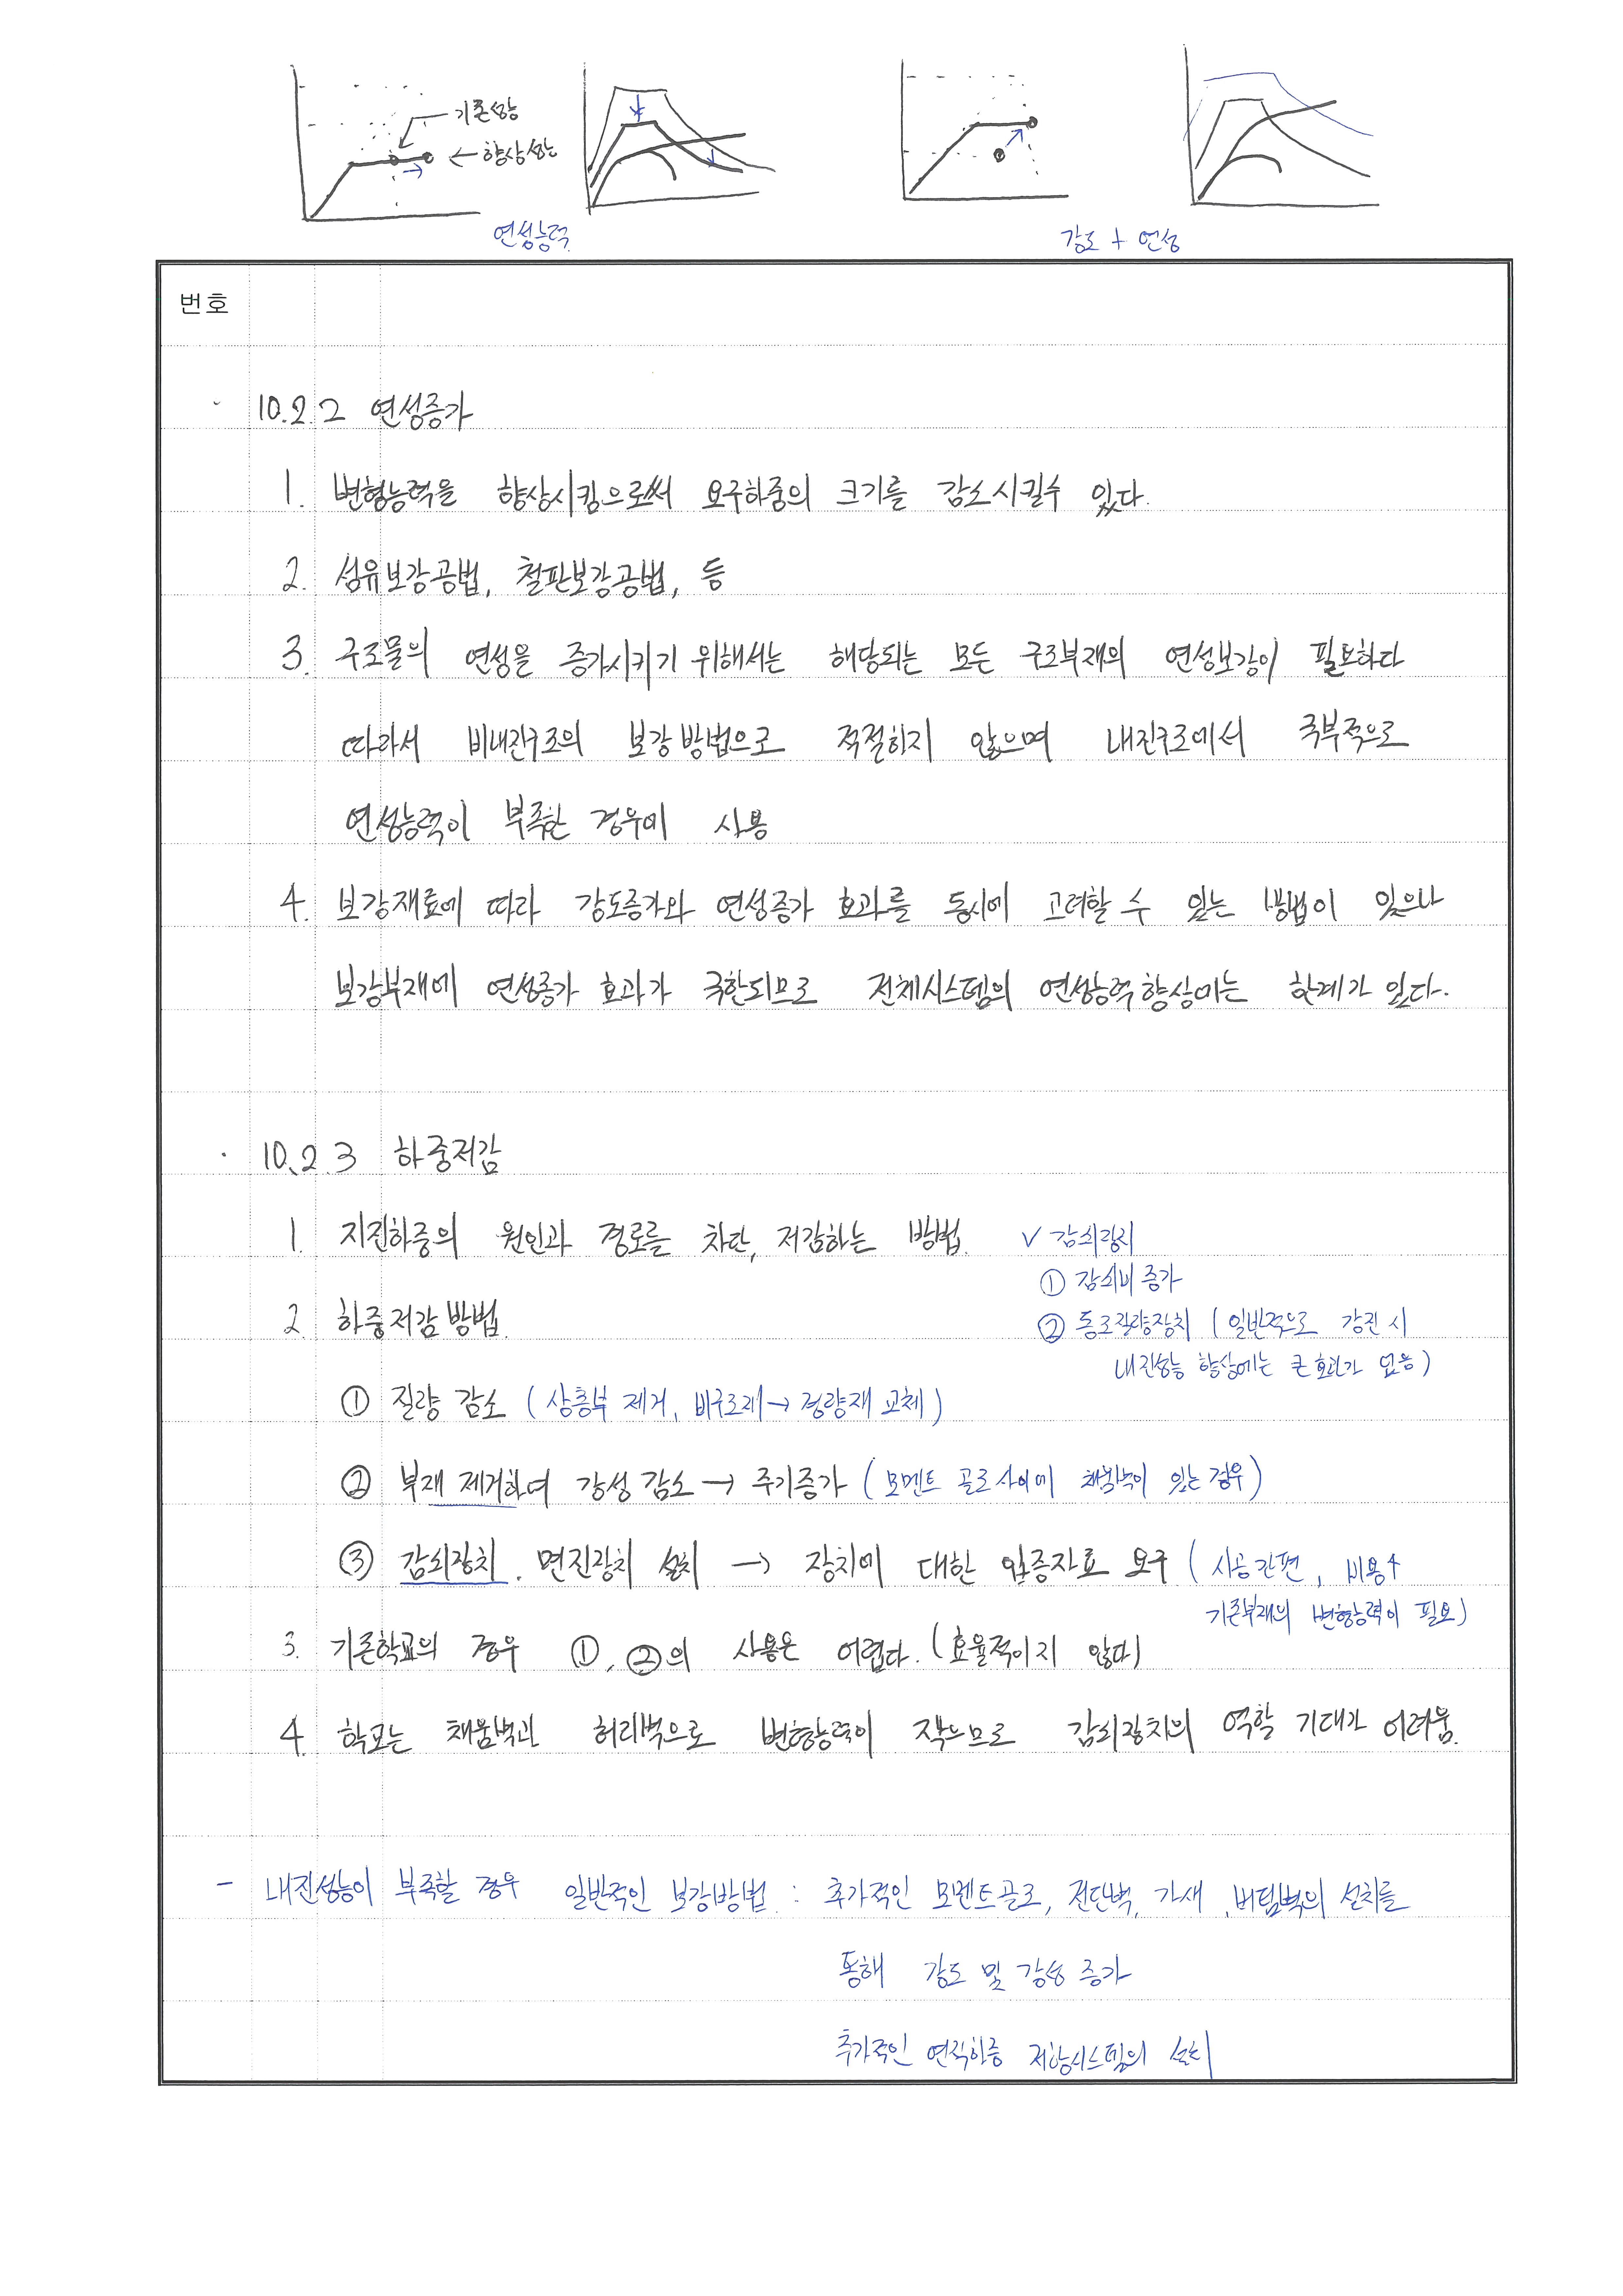 기존성능
향상성능
연성능력
강도 + 연성
번호
· 10.2.2 연성증가
1. 변형능력을 향상시킴으로써 요구하중의 크기를 감소시킬수 있다.
2. 섬유보강공법, 철판보강공법, 등
3. 구조물의 연성을 증가시키기 위해서는 해당되는 모든 구조부재의 연성보강이 필요하다
따라서 비내진구조의 보강방법으로 적절하지 않으며 내진구조에서 국부적으로
연성능력이 부족한 경우에 사용
4. 보강재료에 따라 강도증가와 연성증가 효과를 동시에 고려할 수 있는 방법이 있으나
보강부재에 연성증가 효과가 국한되므로 전체시스템의 연성능력향상에는 한계가 있다.
· 10.2.3 하중저감
1. 지진하중의 원인과 경로를 차단, 저감하는 방법. ✓ 감쇠장치
① 감쇠비 증가
2. 하중저감방법. ② 동조질량장치 (일반적으로 강진 시
내진성능 향상에는 큰 효과가 없음)
① 질량 감소 (상층부 제거, 비구조재→경량재 교체)
② 부재 제거하여 강성 감소 → 주기증가 (모멘트 골조사이에 채움벽이 있는 경우)
③ 감쇠장치. 면진장치 설치 → 장치에 대한 입증자료 요구 (시공간편, 비용↑
기존부재의 변형능력이 필요)
3. 기존학교의 경우 ①, ②의 사용은 어렵다. (효율적이지 않다)
4. 학교는 채움벽과 허리벽으로 변형능력이 작으므로 감쇠장치의 역할 기대가 어려움.
- 내진성능이 부족할 경우 일반적인 보강방법 : 추가적인 모멘트골조, 전단벽, 가새, 버팀벽의 설치를
통해 강도 및 강성 증가
추가적인 연직하중 저항시스템의 설치